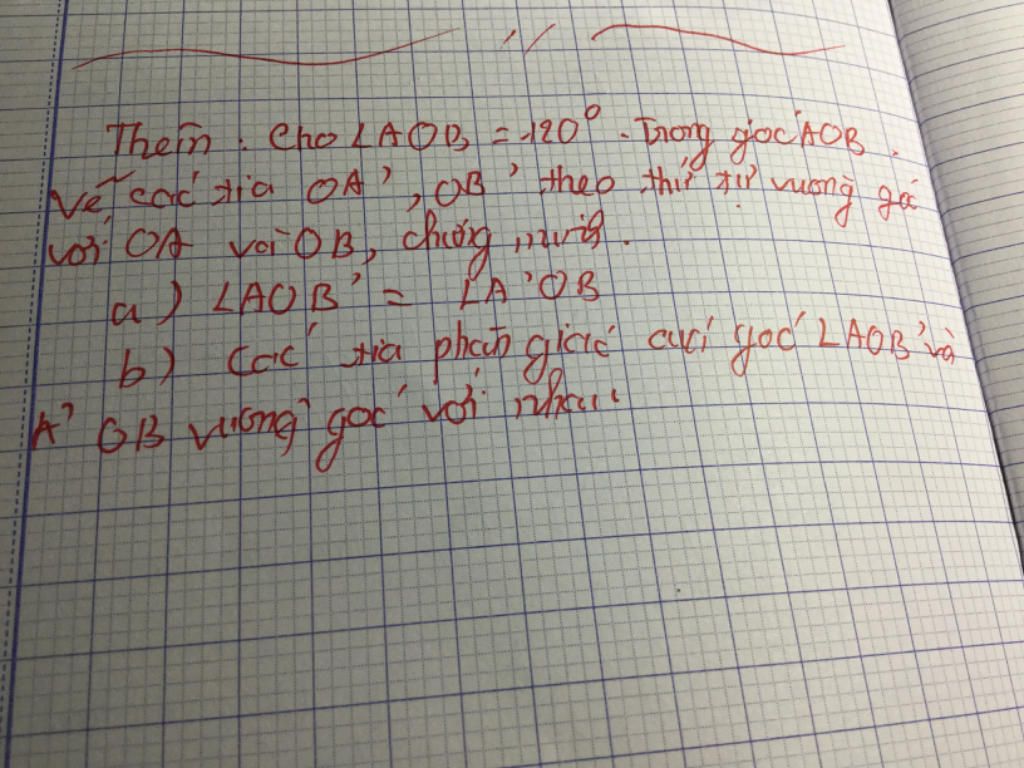 Thêm : Cho ∠AOB = 120° . Trong góc AOB .
Vẽ các tia OA' , OB' theo thứ tự vuông góc
với OA với OB, chứng minh .
a) ∠AOB' = ∠A'OB
b) Các tia phân giác của góc ∠AOB' và
A' OB vuông góc với nhau